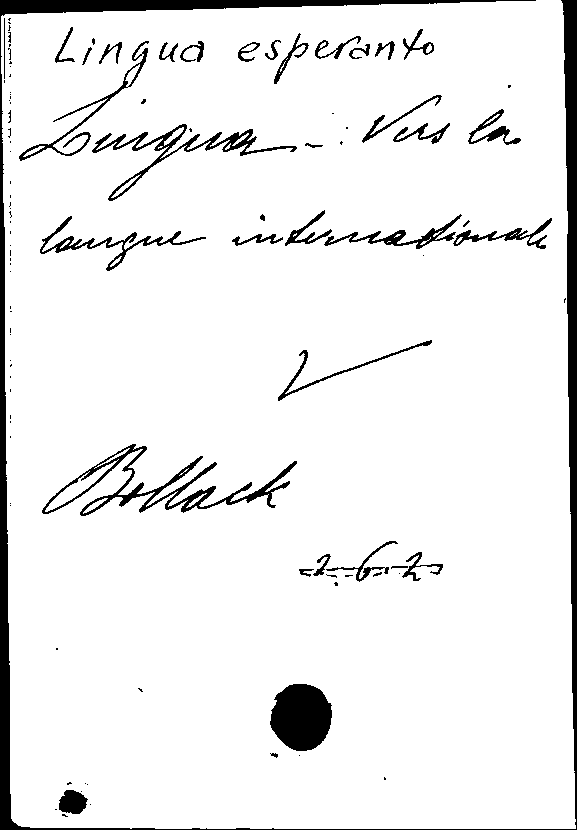 Lingua esperanto
Lingua -: Vers la
langue internationale
Bollack
262